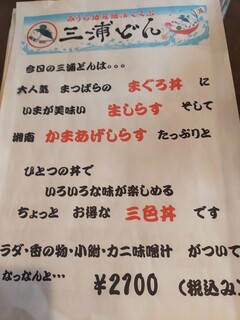 三浦どん
今日の三浦どんは。。。
大人気 まつばらの まぐろ丼 に
いまが美味い 生しらす そして
湘南 かまあげしらす たっぷりと
ひとつの丼で
いろいろな味が楽しめる
ちょっと お得な 三色丼 です
ラダ・香の物・小鉢・カニ味噌汁 がついて
なっなんと… ¥2700 (税込み)